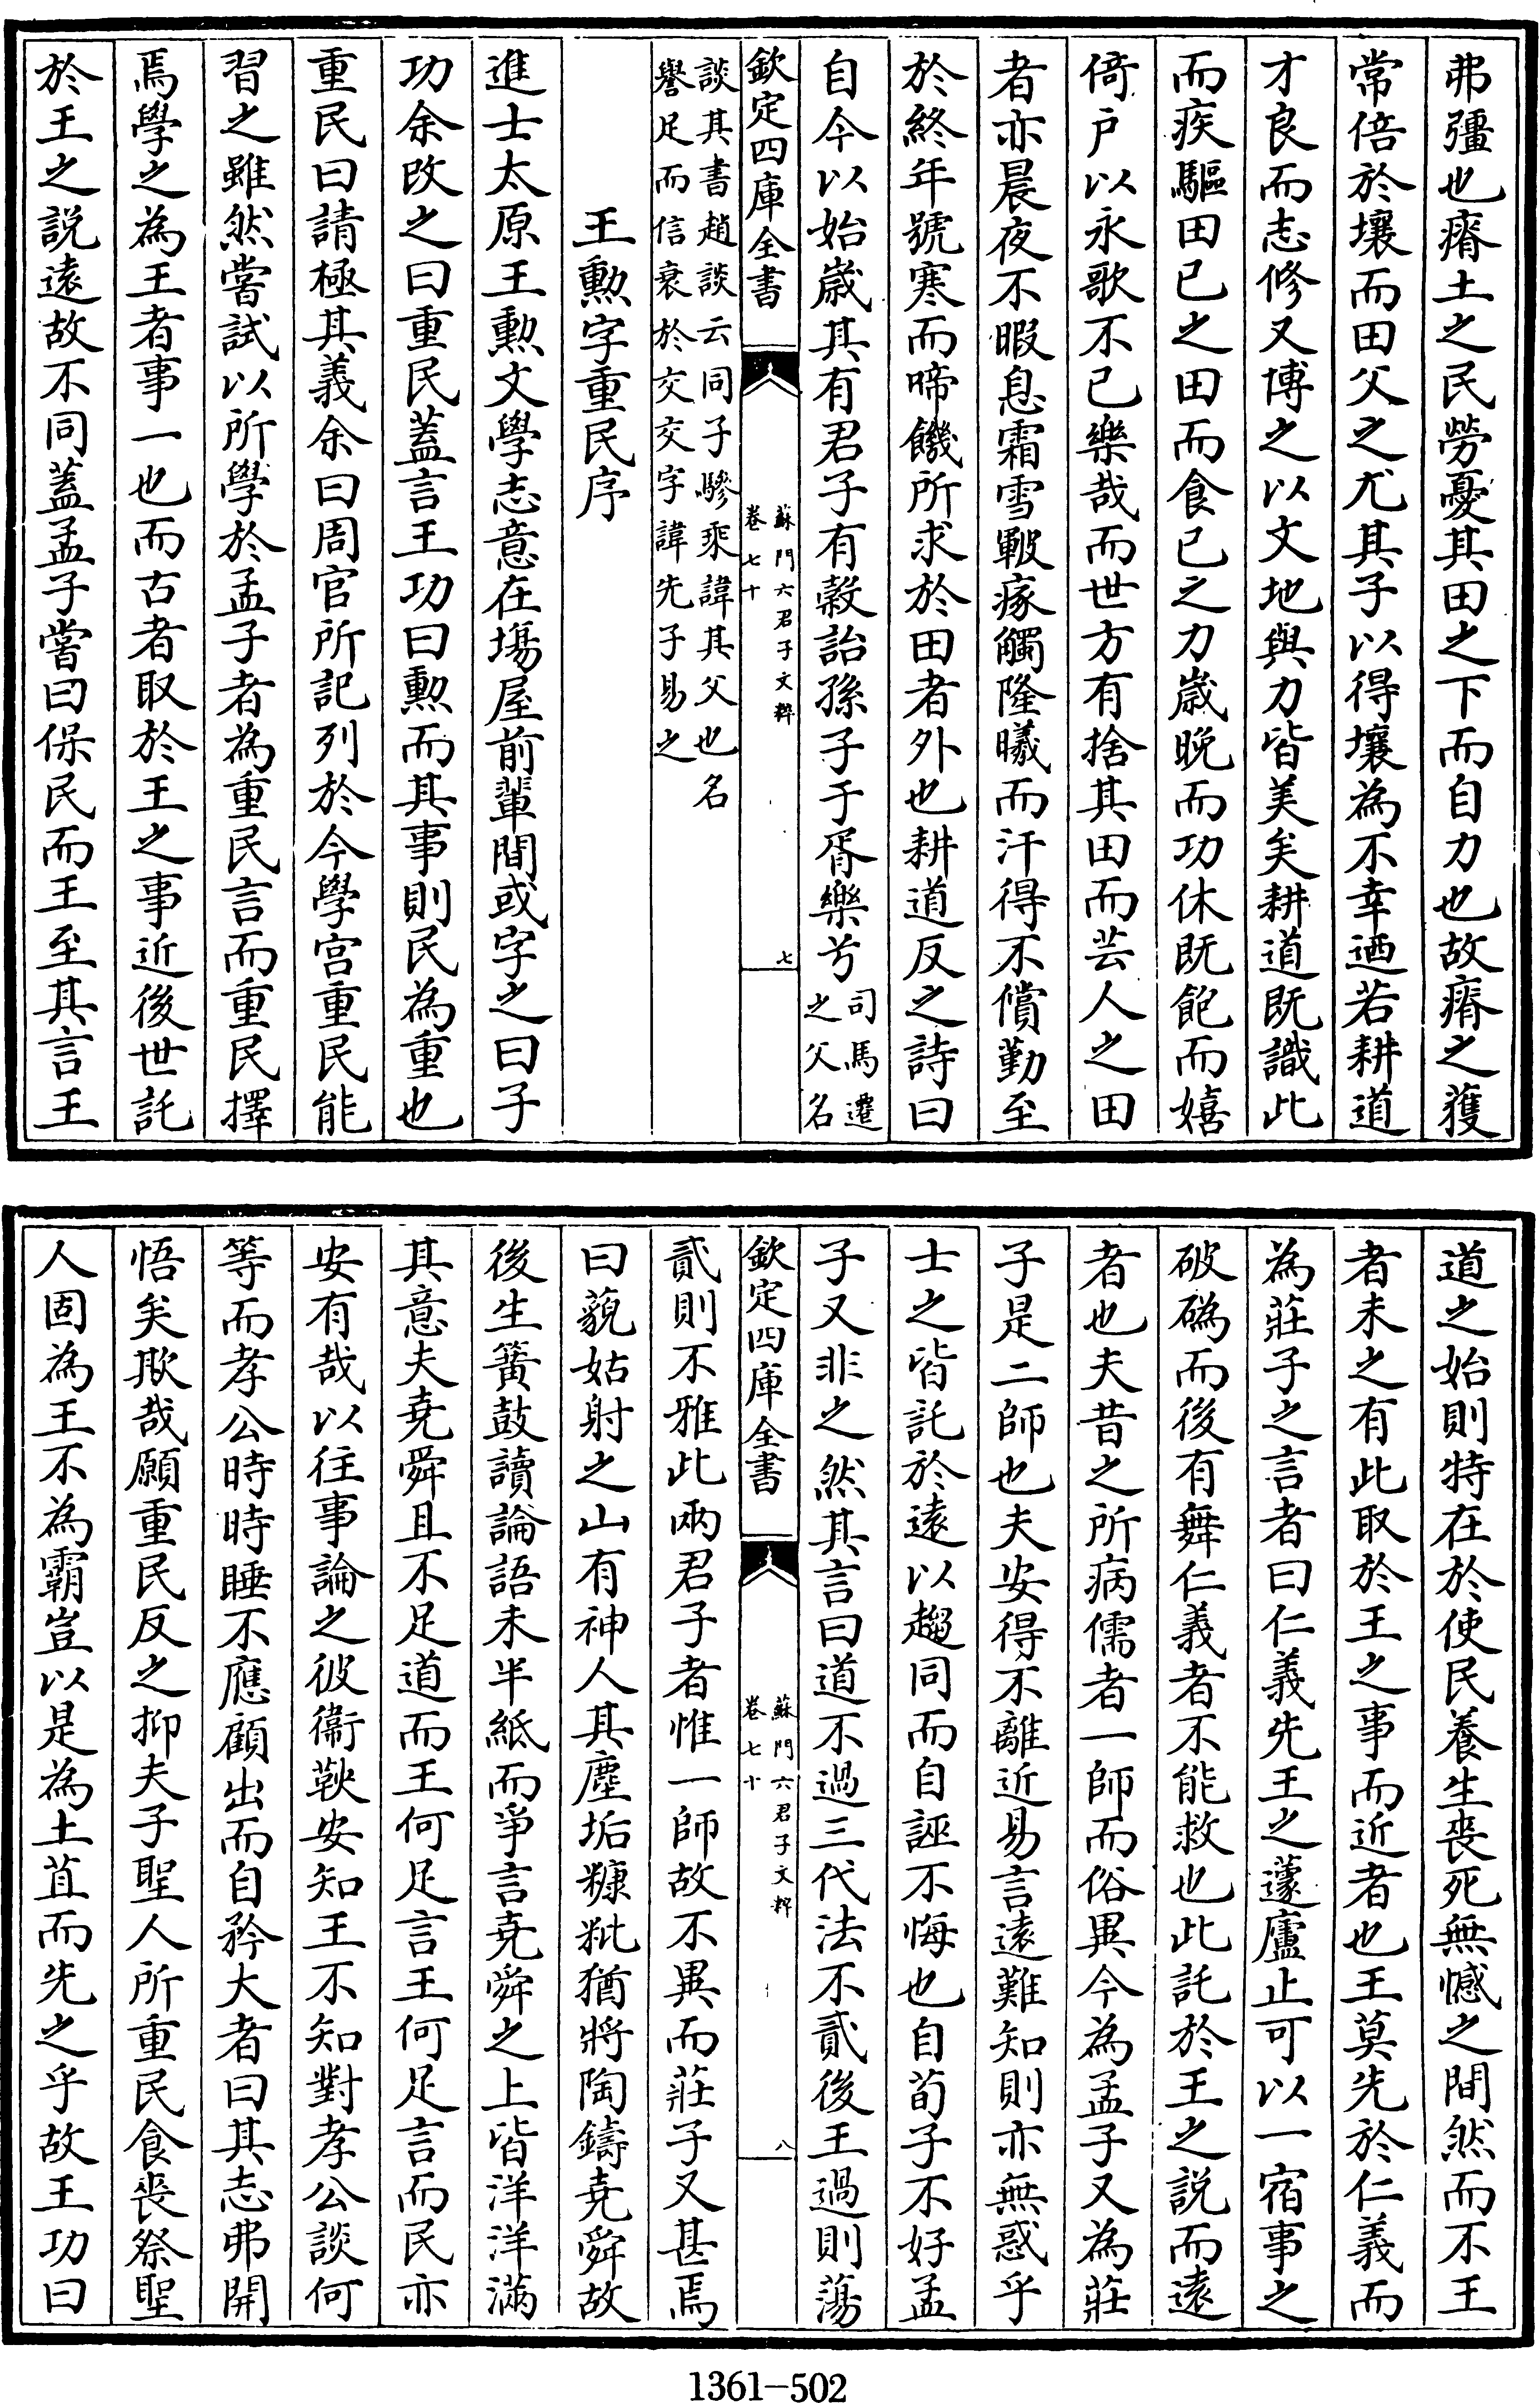 弗彊也瘠土之民勞憂其田之下而自力也故瘠之獲
常倍於壤而田父之尤其子以得壤為不幸迺若耕道
才良而志修又博之以文地與力皆美矣耕道既識此
而疾驅田已之田而食已之力歲晚而功休既飽而嬉
倚户以永歌不已樂哉而世方有捨其田而芸人之田
者亦晨夜不暇息霜雪皸瘃觸隆曦而汗得不償勤至
於終年號寒而啼饑所求於田者外也耕道反之詩曰
自今以始歲其有君子有榖詒孫子于胥樂兮司馬遷
之父名
欽定四庫全書
蘇門六君子文粹
卷七十
七
談其書趙談云同子驂乘諱其父也名
譽足而信衰於交交字諱先子易之
王勲字重民序
進士太原王勲文學志意在塲屋前輩間或字之曰子
功余改之曰重民蓋言王功曰勲而其事則民為重也
重民曰請極其義余曰周官所記列於今學宫重民能
習之雖然嘗試以所學於孟子者為重民言而重民擇
焉學之為王者事一也而古者取於王之事近後世託
於王之説遠故不同蓋孟子嘗曰保民而王至其言王
道之始則特在於使民養生喪死無憾之間然而不王
者未之有此取於王之事而近者也王莫先於仁義而
為莊子之言者曰仁義先王之蘧廬止可以一宿事之
破碼而後有舞仁義者不能救也此託於王之説而遠
者也夫昔之所病儒者一師而俗異今為孟子又為莊
子是二師也夫安得不離近易言遠難知則亦無惑乎
士之皆託於遠以趨同而自誣不悔也自荀子不好孟
子又非之然其言曰道不過三代法不貳後王過則蕩
欽定四庫全書
蘇門六君子文粹
卷七十
八
貳則不雅此兩君子者惟一師故不異而莊子又甚焉
曰藐姑射之山有神人其塵垢糠粃猶將陶鑄堯舜故
後生簧鼓讀論語未半紙而爭言堯舜之上皆洋洋滿
其意夫堯舜且不足道而王何足言王何足言而民亦
安有哉以往事論之彼衞鞅安知王不知對孝公談何
等而孝公時時睡不應顧出而自矜大者曰其志弗開
悟矣欺哉願重民反之抑夫子聖人所重民食喪祭聖
人固為王不為霸豈以是為土苴而先之乎故王功曰
1361-502